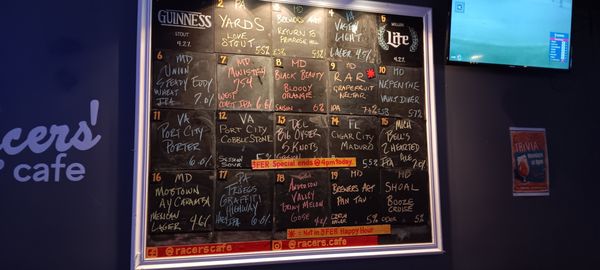 GUINNESS
STOUT
4.2%
2 PA
YARDS
LOVE
STOUT
5.5%
MD
BREWERS ART
RETURN TO
4 VA
VASEN
LIGHT
LAGER 4.5%
5
MILLER
Lite
4.2%
6 MD
UNION
STEADY EDDY
WHEAT
IPA 7.0%
7 MD
MINISTRY
754
WEST
COAST IPA 6.6%
8 MD
BLACK BEAUTY
BLOODY
ORANGE
SAISON 6%
9 MD
RAR
GRAPEFRUIT
NECTAR
IPA
10 MD
NEPENTHE
VAULT DIVER
11 VA
PORT CITY
PORTER
6.0%
12 VA
PORT CITY
COBBLESTONE
SESSION
SOUR
13 DEL
BIG OYSTER
5 KNOTS
14 FL
CIGAR CITY
MADURO
5.5%
15 MICH
BELL'S
2 HEARTED
ALE
IPA 7%
3FER Special ends @4pm Today
16 MD
MOBTOWN
AY CARAMBA
MEXICAN
LAGER 4.6%
17 PA
TROEGS
GRAFFITI
HIGHWAY
IPA 6.0%
18
ANDERSON
VALLEY
BRINY MELON
GOSE 4.2%
19 MD
BREWERS ART
5%
MD
SHOAL
BOOZE
CRUISE
5%
* = Not in 3FER Happy Hour
@racerscafe
@racerscafe
racers'
cafe
TRIVIA